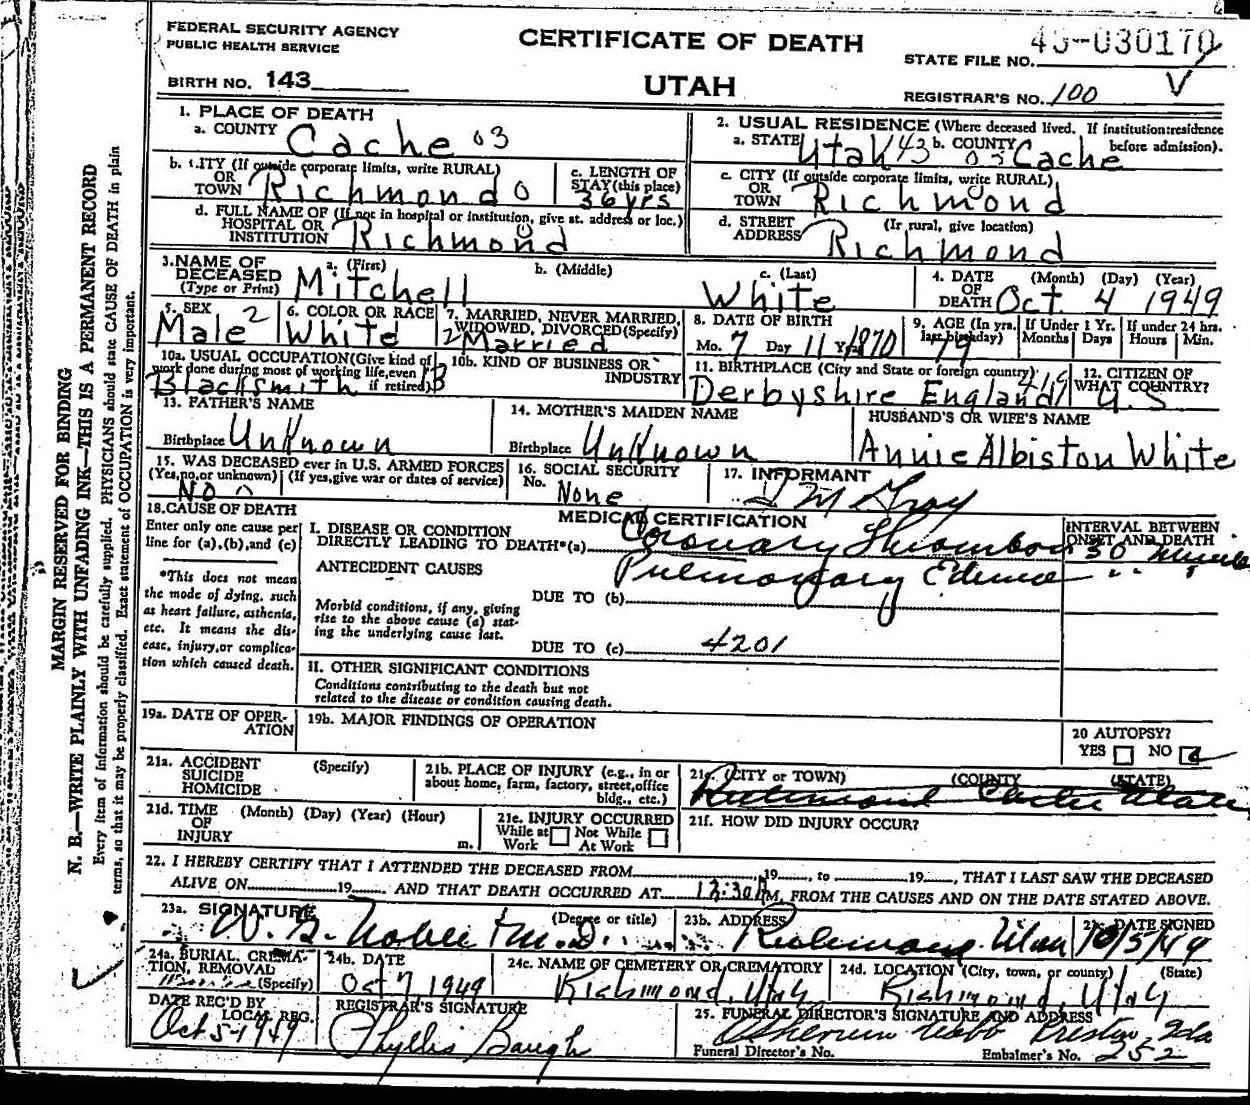 FEDERAL SECURITY AGENCY
PUBLIC HEALTH SERVICE
BIRTH NO. 143
CERTIFICATE OF DEATH
UTAH
STATE FILE NO.
REGISTRAR'S NO. 100 V
1. PLACE OF DEATH
a. COUNTY Cache 03
b. CITY (If outside corporate limits, write RURAL)
OR
TOWN Richmond 0
c. LENGTH OF
STAY (this place)
36 yrs
d. FULL NAME OF (If not in hospital or institution, give st. address or loc.)
HOSPITAL OR
INSTITUTION Richmond
2. USUAL RESIDENCE (Where deceased lived. If institution: residence
before admission).
a. STATE Utah 43 b. COUNTY 03 Cache
c. CITY (If outside corporate limits, write RURAL)
OR
TOWN Richmond
d. STREET (Ir rural, give location)
ADDRESS Richmond
3. NAME OF DECEASED
(Type or Print)
a. (First) Mitchell
b. (Middle)
c. (Last) White
4. DATE OF DEATH (Month) (Day) (Year)
Oct 4 1949
5. SEX
Male 2
6. COLOR OR RACE
White
7. MARRIED, NEVER MARRIED,
WIDOWED, DIVORCED (Specify)
2 Married
8. DATE OF BIRTH
Mo. 7 Day 11 Yr. 1870
9. AGE (In yrs. last birthday) 79
If Under 1 Yr. Months Days
If under 24 hrs. Hours Min.
10a. USUAL OCCUPATION (Give kind of
work done during most of working life, even
if retired)
Blacksmith
10b. KIND OF BUSINESS OR
INDUSTRY
11. BIRTHPLACE (City and State or foreign country)
Derbyshire England
12. CITIZEN OF
WHAT COUNTRY?
U.S.
13. FATHER'S NAME
Birthplace Unknown
14. MOTHER'S MAIDEN NAME
Birthplace Unknown
HUSBAND'S OR WIFE'S NAME
Annie Albiston White
15. WAS DECEASED ever in U.S. ARMED FORCES
(Yes, no, or unknown) (If yes, give war or dates of service)
No
16. SOCIAL SECURITY
No. None
17. INFORMANT
M Gray
18. CAUSE OF DEATH
Enter only one cause per
line for (a), (b), and (c)
*This does not mean
the mode of dying, such
as heart failure, asthenia,
etc. It means the dis-
ease, injury, or complica-
tion which caused death.
MEDICAL CERTIFICATION
I. DISEASE OR CONDITION
DIRECTLY LEADING TO DEATH*(a) Coronary Thrombosis
INTERVAL BETWEEN
ONSET AND DEATH
30 minutes
ANTECEDENT CAUSES Pulmonary Edema " "
DUE TO (b)
Morbid conditions, if any, giving
rise to the above cause (a) stat-
ing the underlying cause last.
DUE TO (c) 4201
II. OTHER SIGNIFICANT CONDITIONS
Conditions contributing to the death but not
related to the disease or condition causing death.
19a. DATE OF OPER-
ATION
19b. MAJOR FINDINGS OF OPERATION
20 AUTOPSY?
YES NO
21a. ACCIDENT
SUICIDE
HOMICIDE
(Specify)
21b. PLACE OF INJURY (e.g., in or
about home, farm, factory, street, office
bldg., etc.)
21c. (CITY OR TOWN) (COUNTY (STATE)
Richmond Cache Utah
21d. TIME (Month) (Day) (Year) (Hour)
OF
INJURY m.
21e. INJURY OCCURRED
While at Work Not While At Work
21f. HOW DID INJURY OCCUR?
22. I HEREBY CERTIFY THAT I ATTENDED THE DECEASED FROM 19 , to 19 , THAT I LAST SAW THE DECEASED
ALIVE ON 19 AND THAT DEATH OCCURRED AT 12:30 M, FROM THE CAUSES AND ON THE DATE STATED ABOVE.
23a. SIGNATURE (Degree or title)
M.D.
23b. ADDRESS
Richmond Utah
23c. DATE SIGNED
10/5/49
24a. BURIAL, CREMA-
TION, REMOVAL
(Specify)
24b. DATE
Oct 7, 1949
24c. NAME OF CEMETERY OR CREMATORY
Richmond, Utah
24d. LOCATION (City, town, or county) (State)
Richmond, Utah
DATE REC'D BY
LOCAL REG.
Oct 5-1949
REGISTRAR'S SIGNATURE
Phyllis Baugh
25. FUNERAL DIRECTOR'S SIGNATURE AND ADDRESS
Webb Preston, Ida
Funeral Director's No. Embalmer's No. 252
MARGIN RESERVED FOR BINDING
N. B.—WRITE PLAINLY WITH UNFADING INK—THIS IS A PERMANENT RECORD
Every item of information should be carefully supplied. PHYSICIANS should state CAUSE OF DEATH in plain
terms, so that it may be properly classified. Exact statement of OCCUPATION is very important.